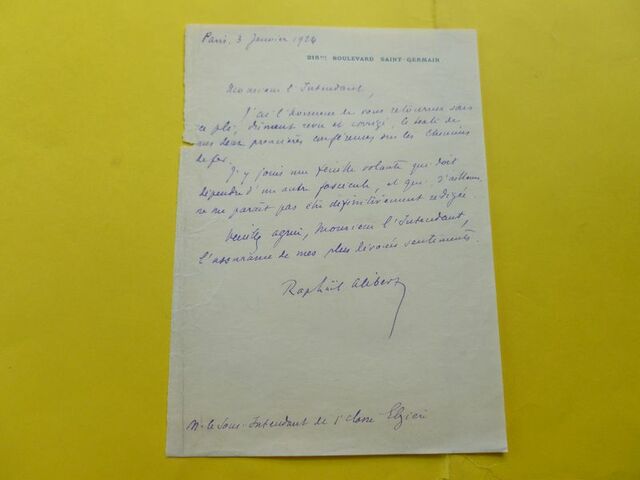 Paris, 3 Janvier 1924
BOULEVARD SAINT-GERMAIN
Monsieur l'Intendant,
J'ai l'honneur de vous retourner sous
ce pli, dûment revu et corrigé, le texte de
mes deux premières conférences sur les chemins
de fer.
J'y joins une feuille volante qui doit
dépendre d'un autre fascicule, et qui, d'ailleurs,
ne me paraît pas être définitivement rédigée.
Veuillez agréer, Monsieur l'Intendant,
l'assurance de mes plus dévoués sentiments.
Raphaël Alibert
M. le Sous-Intendant de 1e classe